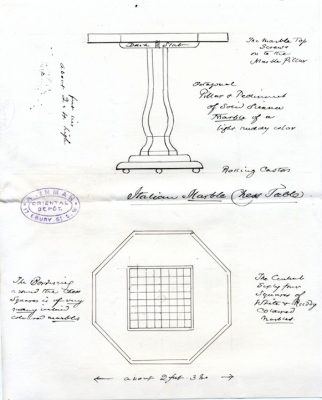 The Marble Top
Screws
on to the
Marble Pillar
about 2 ft high
Octagonal
Pillar & Pediment
of Solid Sienna
Marble of a
light ruddy color
Rolling Castors
Italian Marble Chess Table
INMAN
ORIENTAL
DEPOT.
EBURY ST. S.
The Bordering
around the Chess
Squares is of very
many
colored marbles
The Central
Sixty four
Squares of
White & Ruddy
Coloured
Marbles.
about 2 feet 3 ins